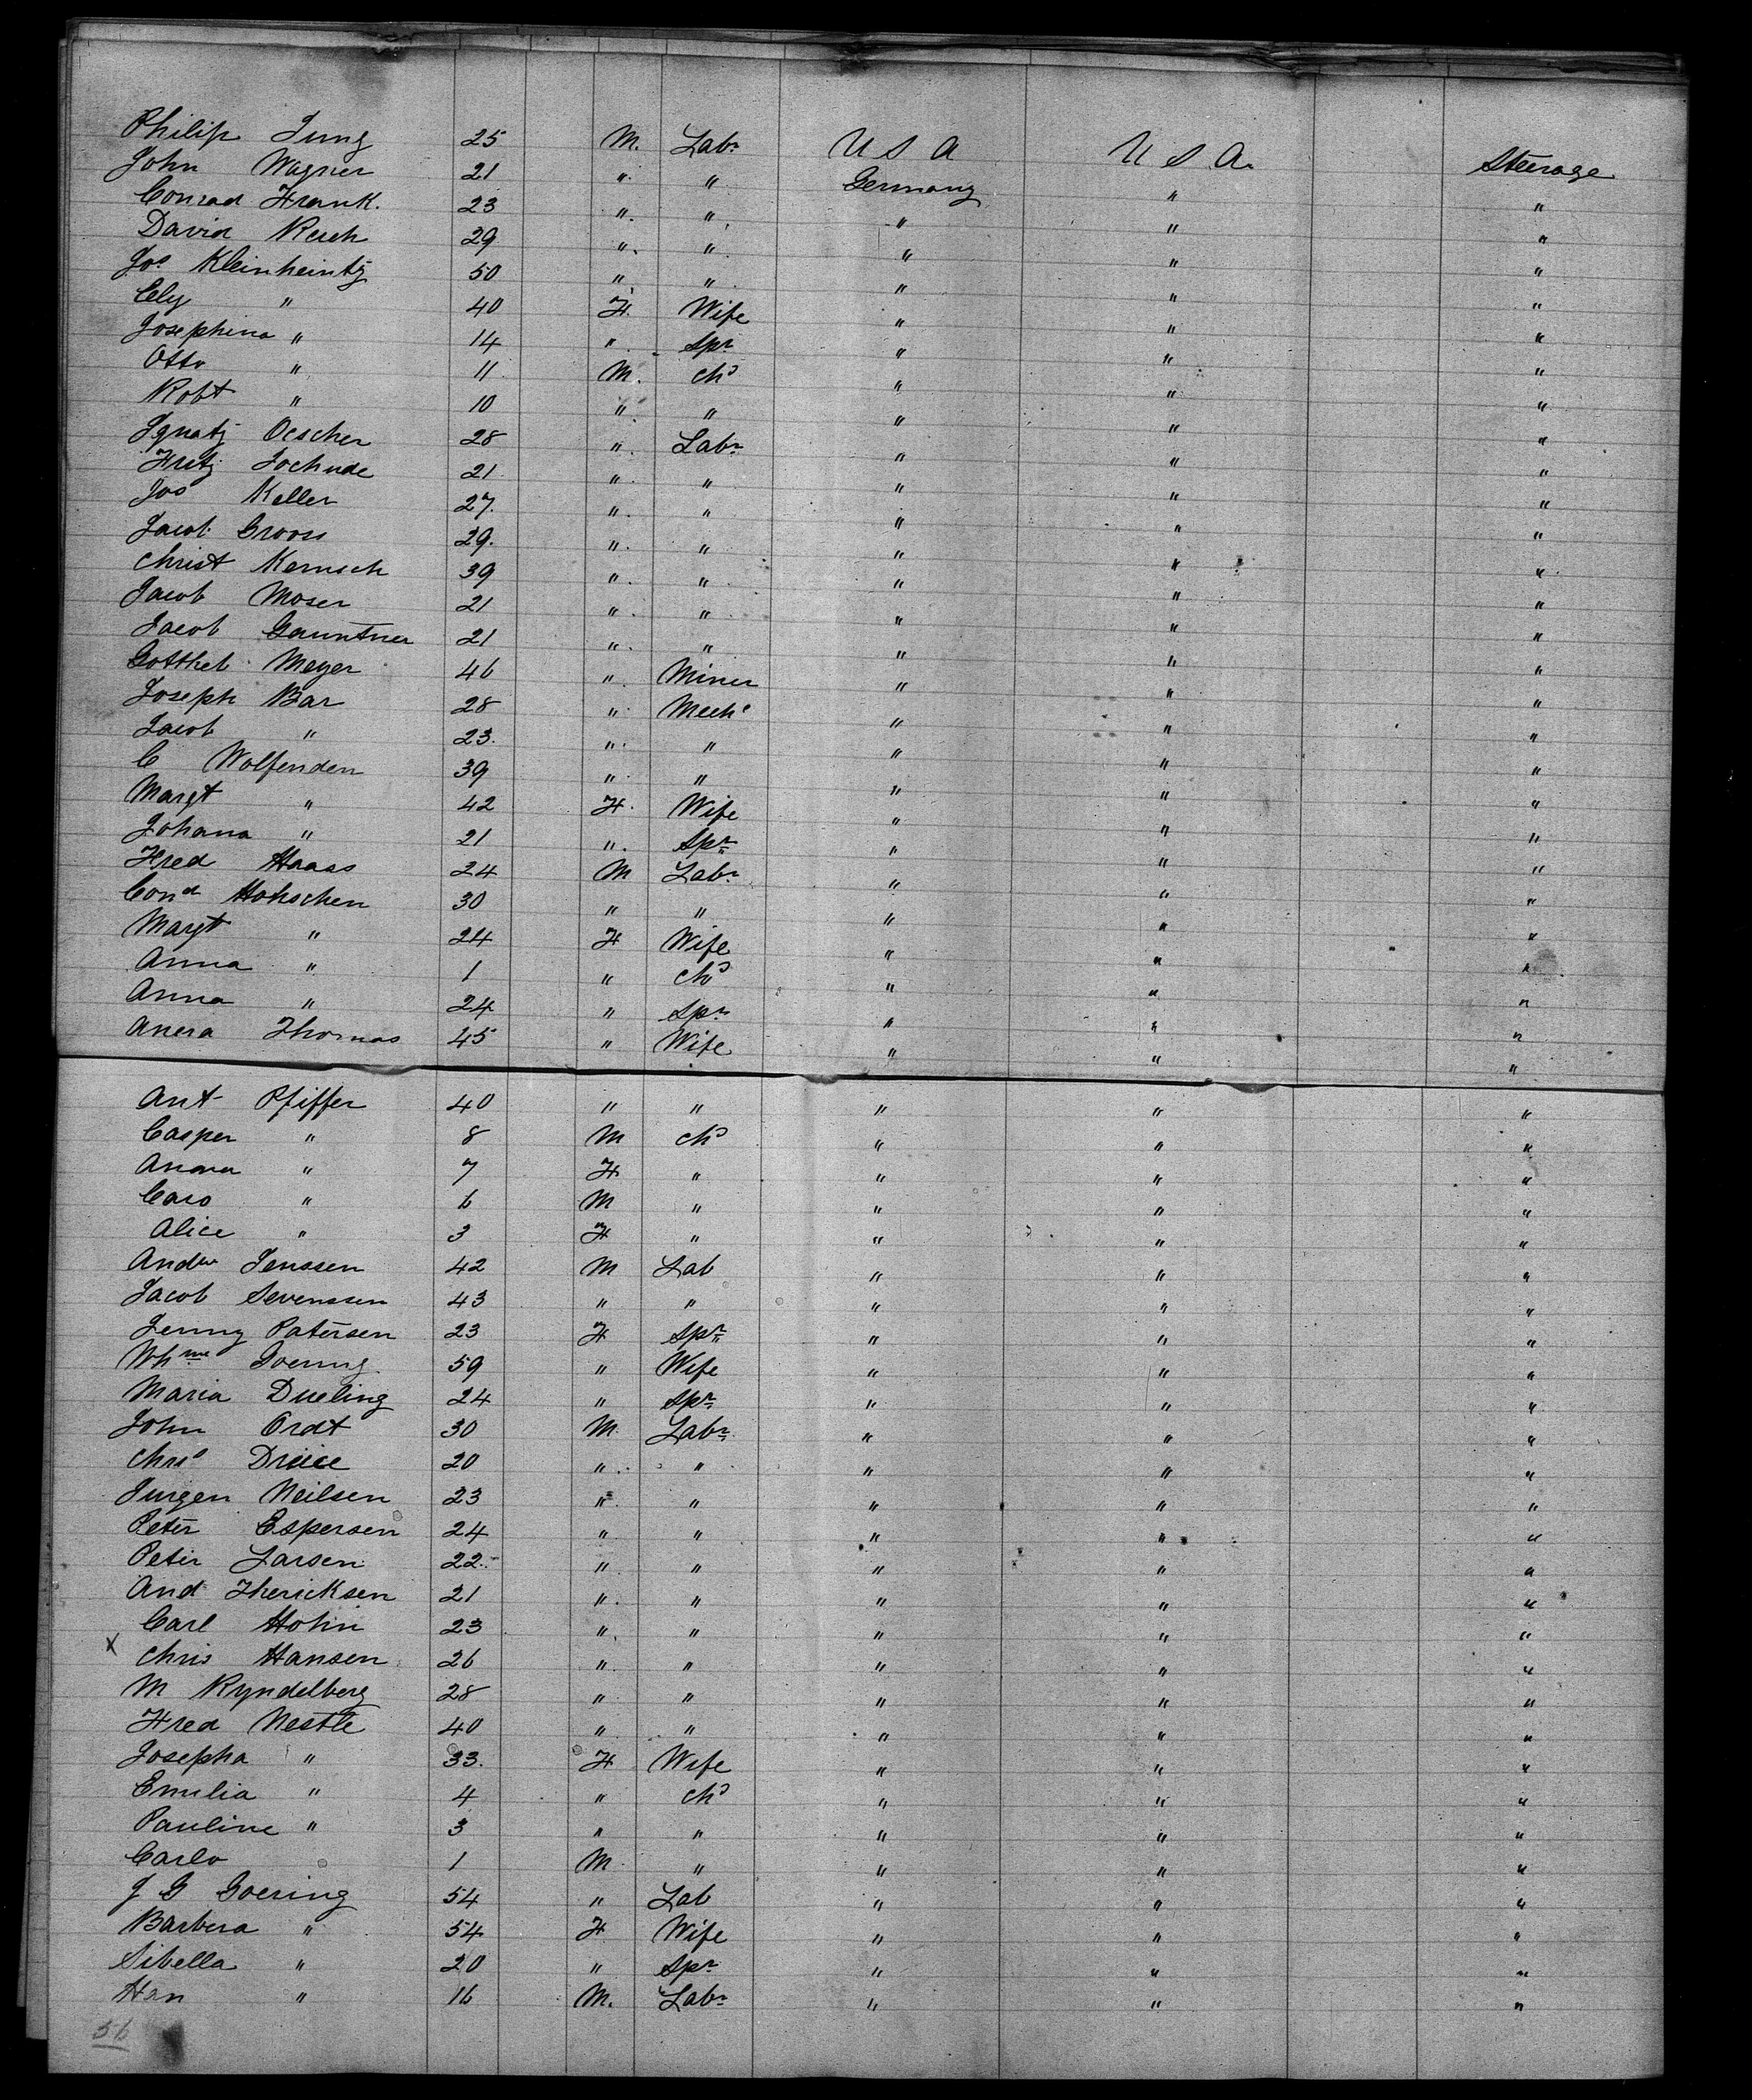 Philip Jung 25 M. Labr U S A U S A. Steerage
John Wagner 21 " " Germany " "
Conrad Frank. 23 " " " " "
David Resch 29 " " " " "
Jos Kleinheintz 50 " " " " "
Cly " 40 F. Wife " " "
Josephina " 14 " Spr " " "
Otto " 11 M. chd " " "
Robt " 10 " " " " "
Ignatz Oescher 28 " Labr " " "
Fritz Lochude 21 " " " " "
Jos Keller 27. " " " " "
Jacob Grooss 29. " " " " "
Christ Kernsch 39 " " " " "
Jacob Moser 21 " " " " "
Jacob Gauntner 21 " " " " "
Gottheb Meyer 46 " Miner " " "
Joseph Bar 28 " Mechc " " "
Jacob " 23. " " " " "
C Wolfenden 39 " " " " "
Margt " 42 F. Wife " " "
Johana " 21 " Spr " " "
Fred Haass 24 M Labr " " "
Cond Hohschen 30 " " " " "
Margt " 24 F Wife " " "
Anna " 1 " chd " " "
Anna " 24 " Spr " " "
Anera Thomas 45 " Wife " " "
Ant Pfiffer 40 " " " " "
Casper " 8 M chd " " "
Anna " 7 F " " " "
Caro " 6 M " " " "
Alice " 3 F " " " "
Andw Jenssen 42 M Lab " " "
Jacob Sevenssen 43 " " " " "
Jenny Patersen 23 F Spr " " "
Whme Goering 59 " Wife " " "
Maria Dueling 24 " Spr " " "
John Ordt 30 M. Labr " " "
Chrs Driice 20 " " " " "
Jurgen Neilsen 23 " " " " "
Peter Espersen 24 " " " " "
Peter Larsen 22. " " " " "
And Thericksen 21 " " " " "
Carl Hohn 23 " " " " "
X Chris Hansen 26 " " " " "
M Ryndelberg 28 " " " " "
Fred Nestle 40 " " " " "
Josepha " 33. F Wife " " "
Emilia " 4 " chd " " "
Pauline " 3 " " " " "
Carlo 1 M " " " "
J G Goering 54 " Lab " " "
Barbera " 54 F Wife " " "
Sibella " 20 " Spr " " "
Han " 16 M. Labr " " "
56